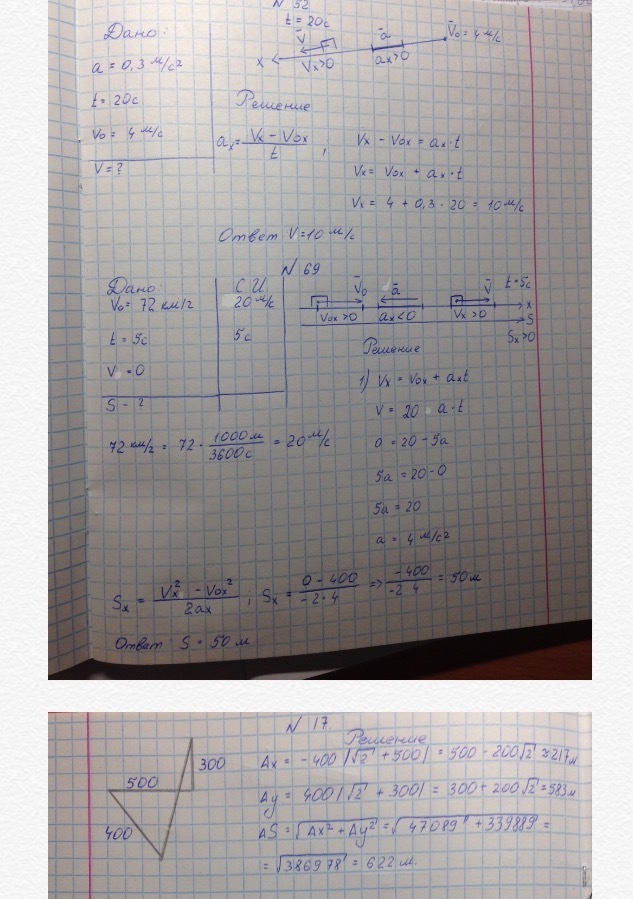 N 52
Дано:
a = 0,3 м/с²
t = 20с
V₀ = 4 м/с
V = ?
t = 20с
V̄
ā
V̄₀ = 4 м/с
x
Vx>0
ax>0
Решение
ax = (Vx - V₀x)/t ,
Vx - V₀x = ax·t
Vx = V₀x + ax·t
Vx = 4 + 0,3 · 20 = 10 м/с
Ответ V=10 м/с
N 69
Дано:
СИ
V₀ = 72 км/г
20 м/с
t = 5с
5с
V = 0
S - ?
V̄₀
ā
V̄
t = 5с
V₀x >0
ax<0
Vx >0
x
S
Sx>0
Решение
1) Vx = V₀x + axt
V = 20 a·t
0 = 20 - 5a
5a = 20 - 0
5a = 20
a = 4 м/с²
72 км/г = 72 · 1000м/3600с = 20 м/с
Sx = (Vx² - V₀x²)/2ax ; Sx = (0 - 400)/(-2·4) => -400/(-2 4) = 50м
Ответ S = 50 м
N 17.
Решение
300
500
400
Ax = -400/√2 + 500/ = 500 - 200√2 ≈ 217м
Ay = 400/√2 + 300/ = 300 + 200√2 = 583м
AS = √(Ax² + Ay²) = √(47089 + 339889) =
= √386978 = 622 м.